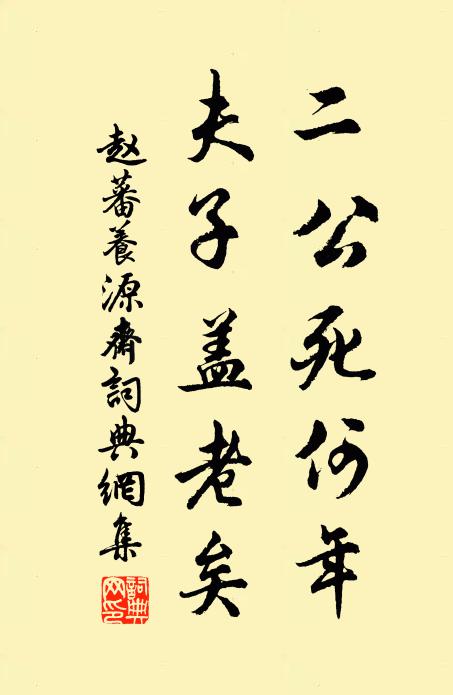 二公死何年
夫子盖老矣
赵蕃養源齋詞典網集
詞典網印